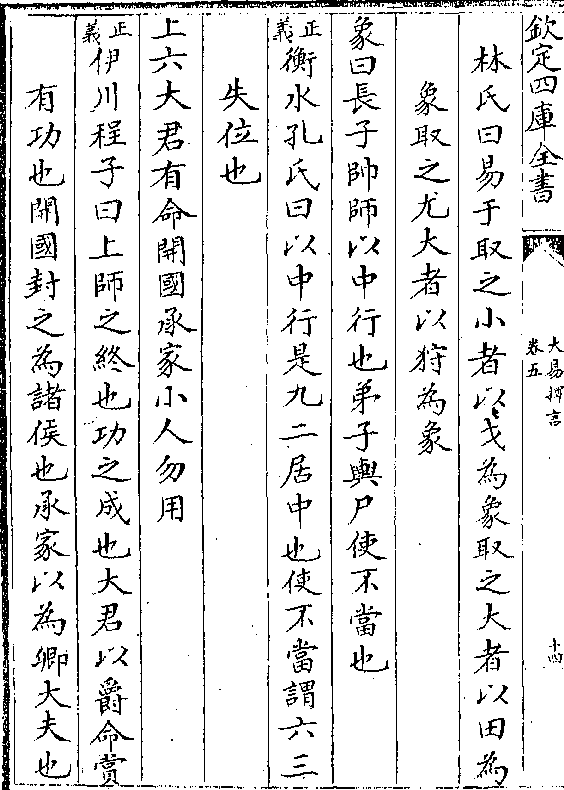 欽定四庫全書
大易擇言
卷五
十四
林氏曰易于取之小者以弋為象取之大者以田為
象取之尤大者以狩為象
象曰長子帥師以中行也弟子輿尸使不當也
正義衡水孔氏曰以中行是九二居中也使不當謂六三
失位也
上六大君有命開國承家小人勿用
正義伊川程子曰上師之終也功之成也大君以爵命賞
有功也開國封之為諸侯也承家以為卿大夫也